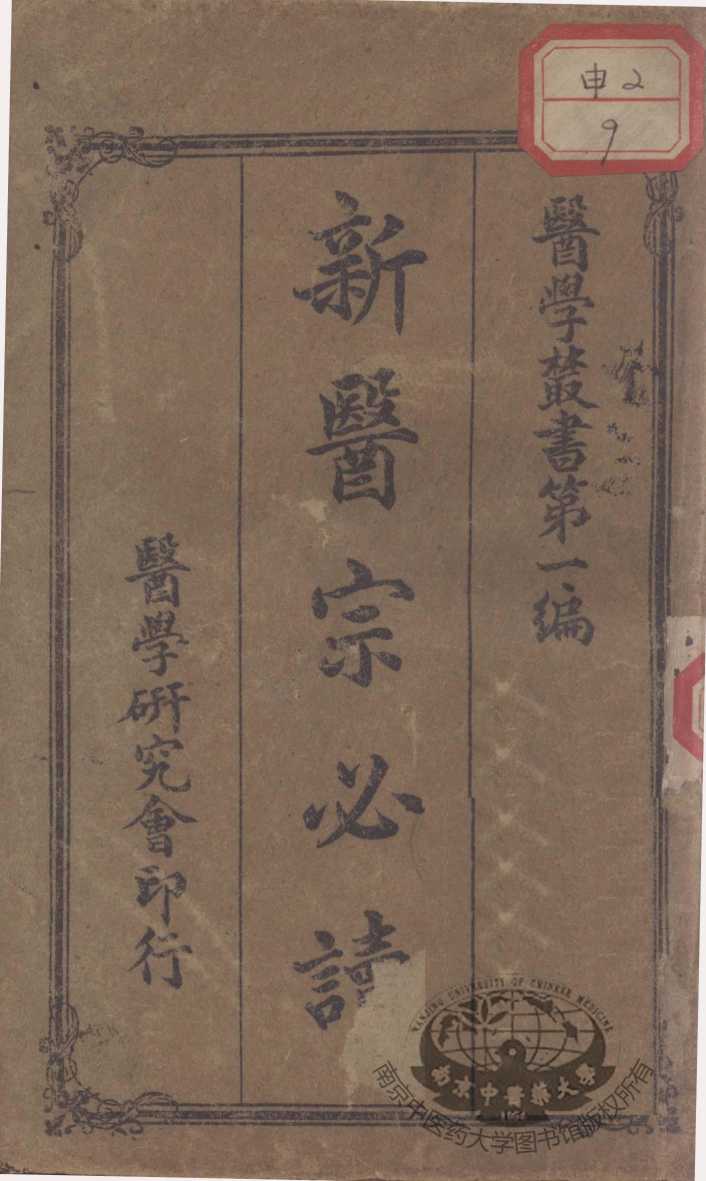 申2
9
醫學叢書第一編
新醫宗必讀
醫學研究會印行
NANJING UNIVERSITY OF CHINESE MEDICINE
南京中醫藥大學
南京中医药大学图书馆版权所有